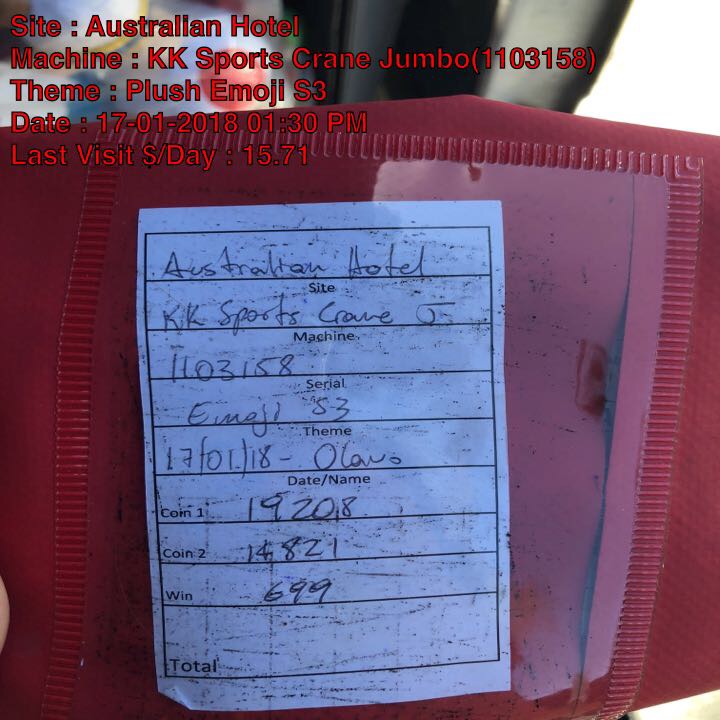 Site : Australian Hotel
Machine : KK Sports Crane Jumbo(1103158)
Theme : Plush Emoji S3
Date : 17-01-2018 01:30 PM
Last Visit $/Day : 15.71
Australian Hotel
Site
KK Sports Crane J
Machine
1103158
Serial
Emoji S3
Theme
17/01/18 - Olavo
Date/Name
Coin 1 19208
Coin 2 14821
Win 699
Total